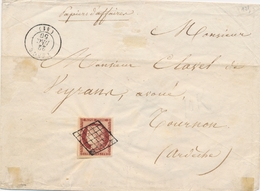 Papiers d'affaires
Monsieur
Monsieur Clavel de
Veyrans, avoué,
Tournon
(Ardèche)